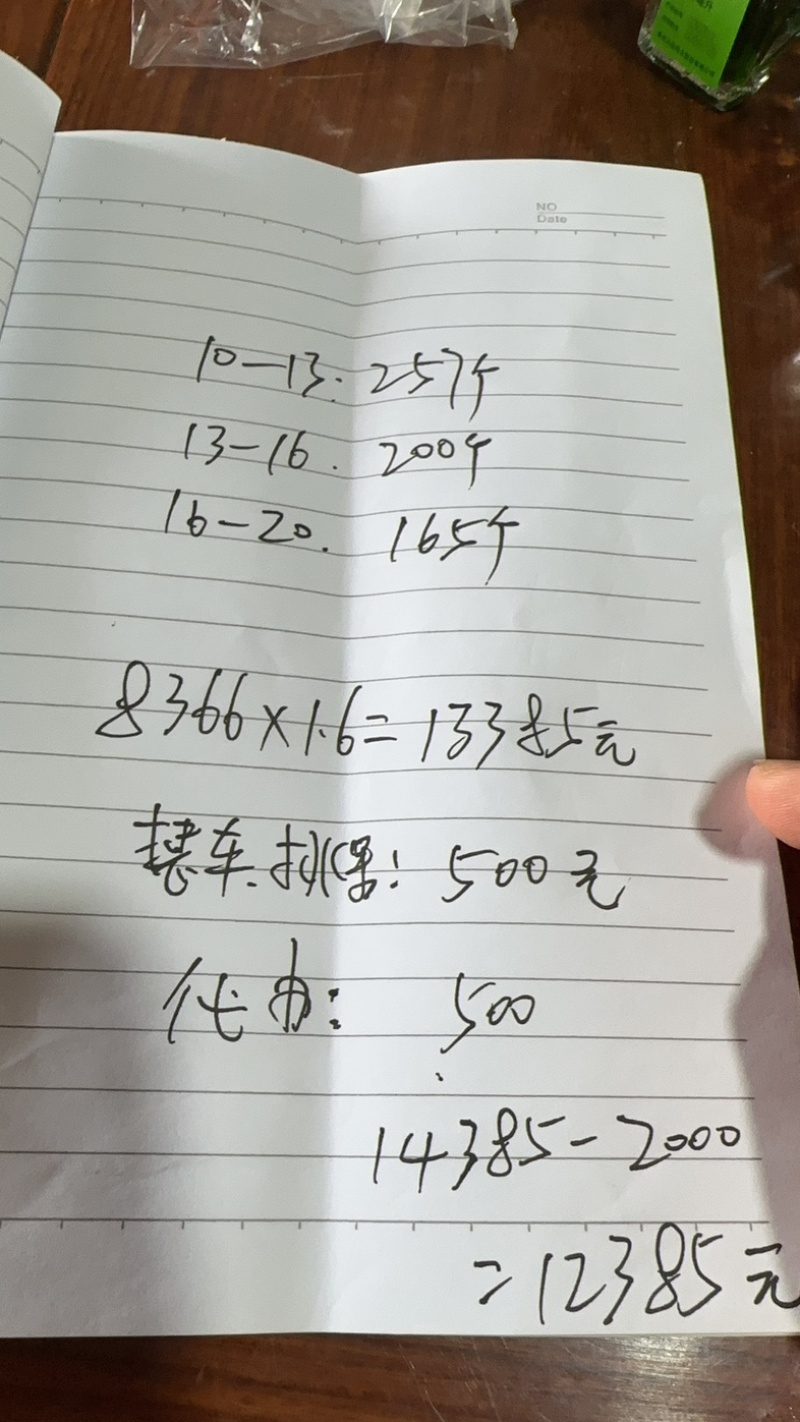 NO
Date
10-13: 257个
13-16. 200个
16-20. 165个
8366×1.6=13385元
装车.排保: 500元
代办: 500
14385-2000
=12385元